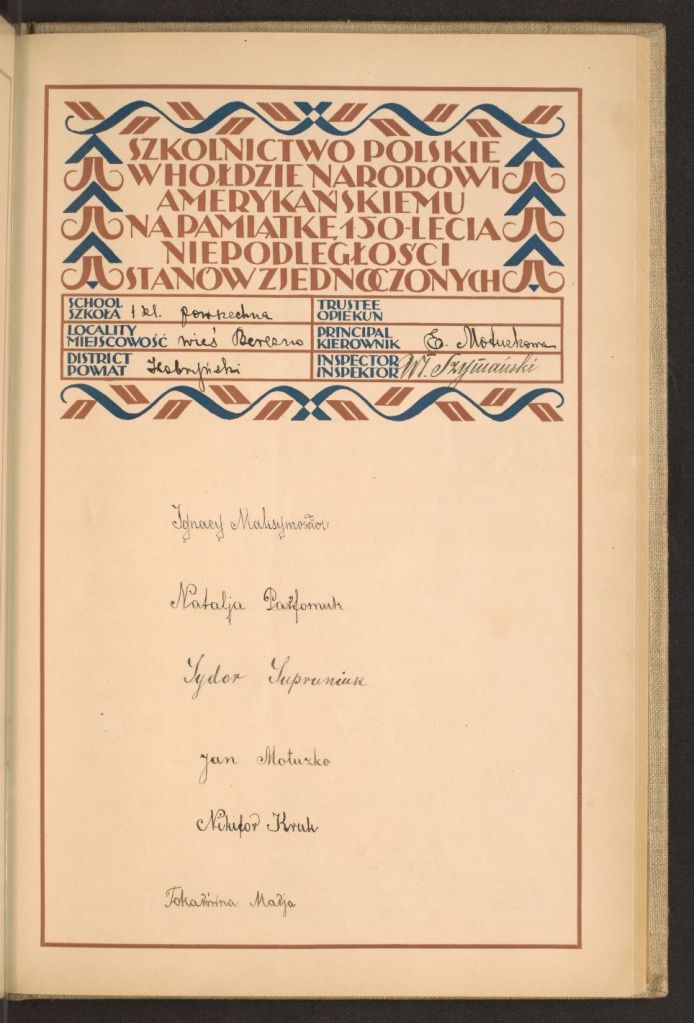 SZKOLNICTWO POLSKIE
W HOŁDZIE NARODOWI
AMERYKAŃSKIEMU
NA PAMIĄTKĘ 150-LECIA
NIEPODLEGŁOŚCI
STANÓW ZJEDNOCZONYCH
SCHOOL
SZKOŁA 1 kl. powszechna
TRUSTEE
OPIEKUN
LOCALITY
MIEJSCOWOŚĆ wieś
PRINCIPAL
KIEROWNIK E.
DISTRICT
POWIAT Kobryński
INSPECTOR
INSPEKTOR Wł. Szymański
Ignacy Maksymowicz
Natalja
Sydor Supruniuk
Jan Motuzko
Nikifor Kruk